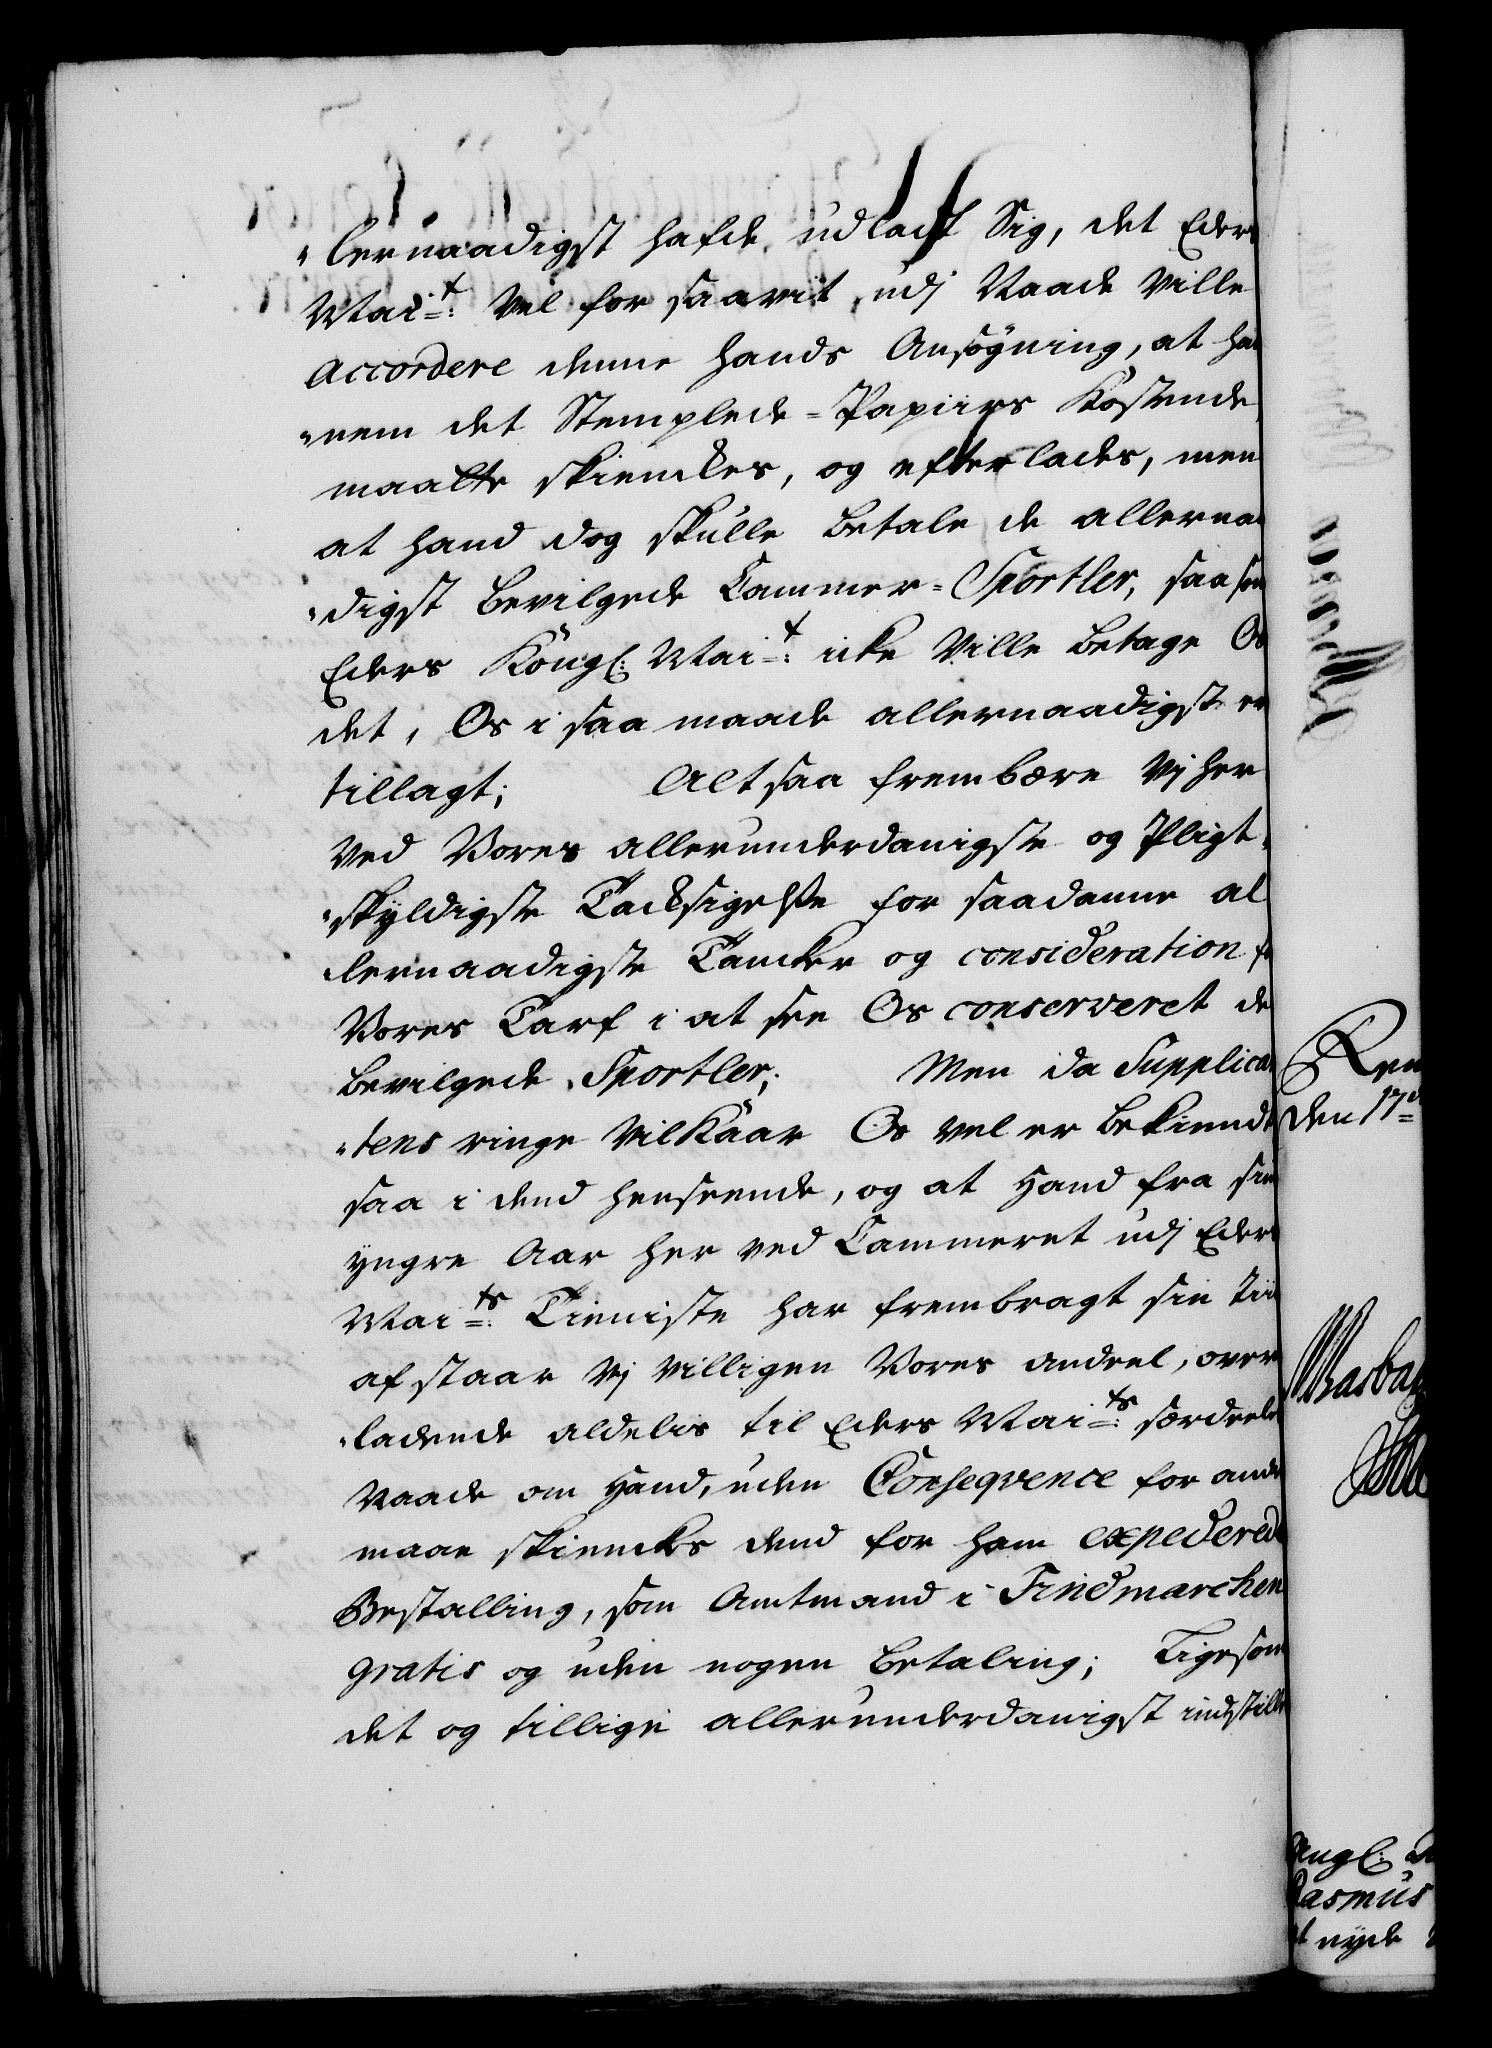 "lernaadigst hafde udladt Sig, det Eders
Mai.t: vel for saavit udj Naade ville
accordere denne hands Ansøgning, at han
"nem det Stemplede-Papiirs Kostende
maatte skienckes, og efterlades, men
at hand dog skulle betale de allernaa
"digst bevilgede Cammer-Sportler, saasom
Eders Köngl: Mai.t: icke ville betage Os
det, Os i saa maade allernaadigst er
tillagt; Alt saa frembære Vj her
ved Vores allerunderdanigste og Pligt-
"skyldigste Tacksigelse for saadanne al
lernaadigste Tancker og consideration for
Vores Tarf i at see Os conserveret de
bevilgede Sportler; Men da Supplican
"tens ringe Vilkaar Os vel er bekiendt
saa i dend henseende, og at Hand fra sine
yngre Aar her ved Cammeret udj Eders
Mai.ts: Tieniste har frembragt sin Tiid
afstaar Vj villigen Vores andeel, over
"ladende aldelis til Eders Mai.ts: særdeeles
Naade om Hand, uden Conseqvence for andre
maae skienckes dend for ham expederede
Bestalling, som Amtmand i Findmarchen
gratis og uden nogen betaling; Ligesom
det og tillige allerunderdanigst indstilles
Ren
den 17de
Kngl:
Rasmus
at nyde